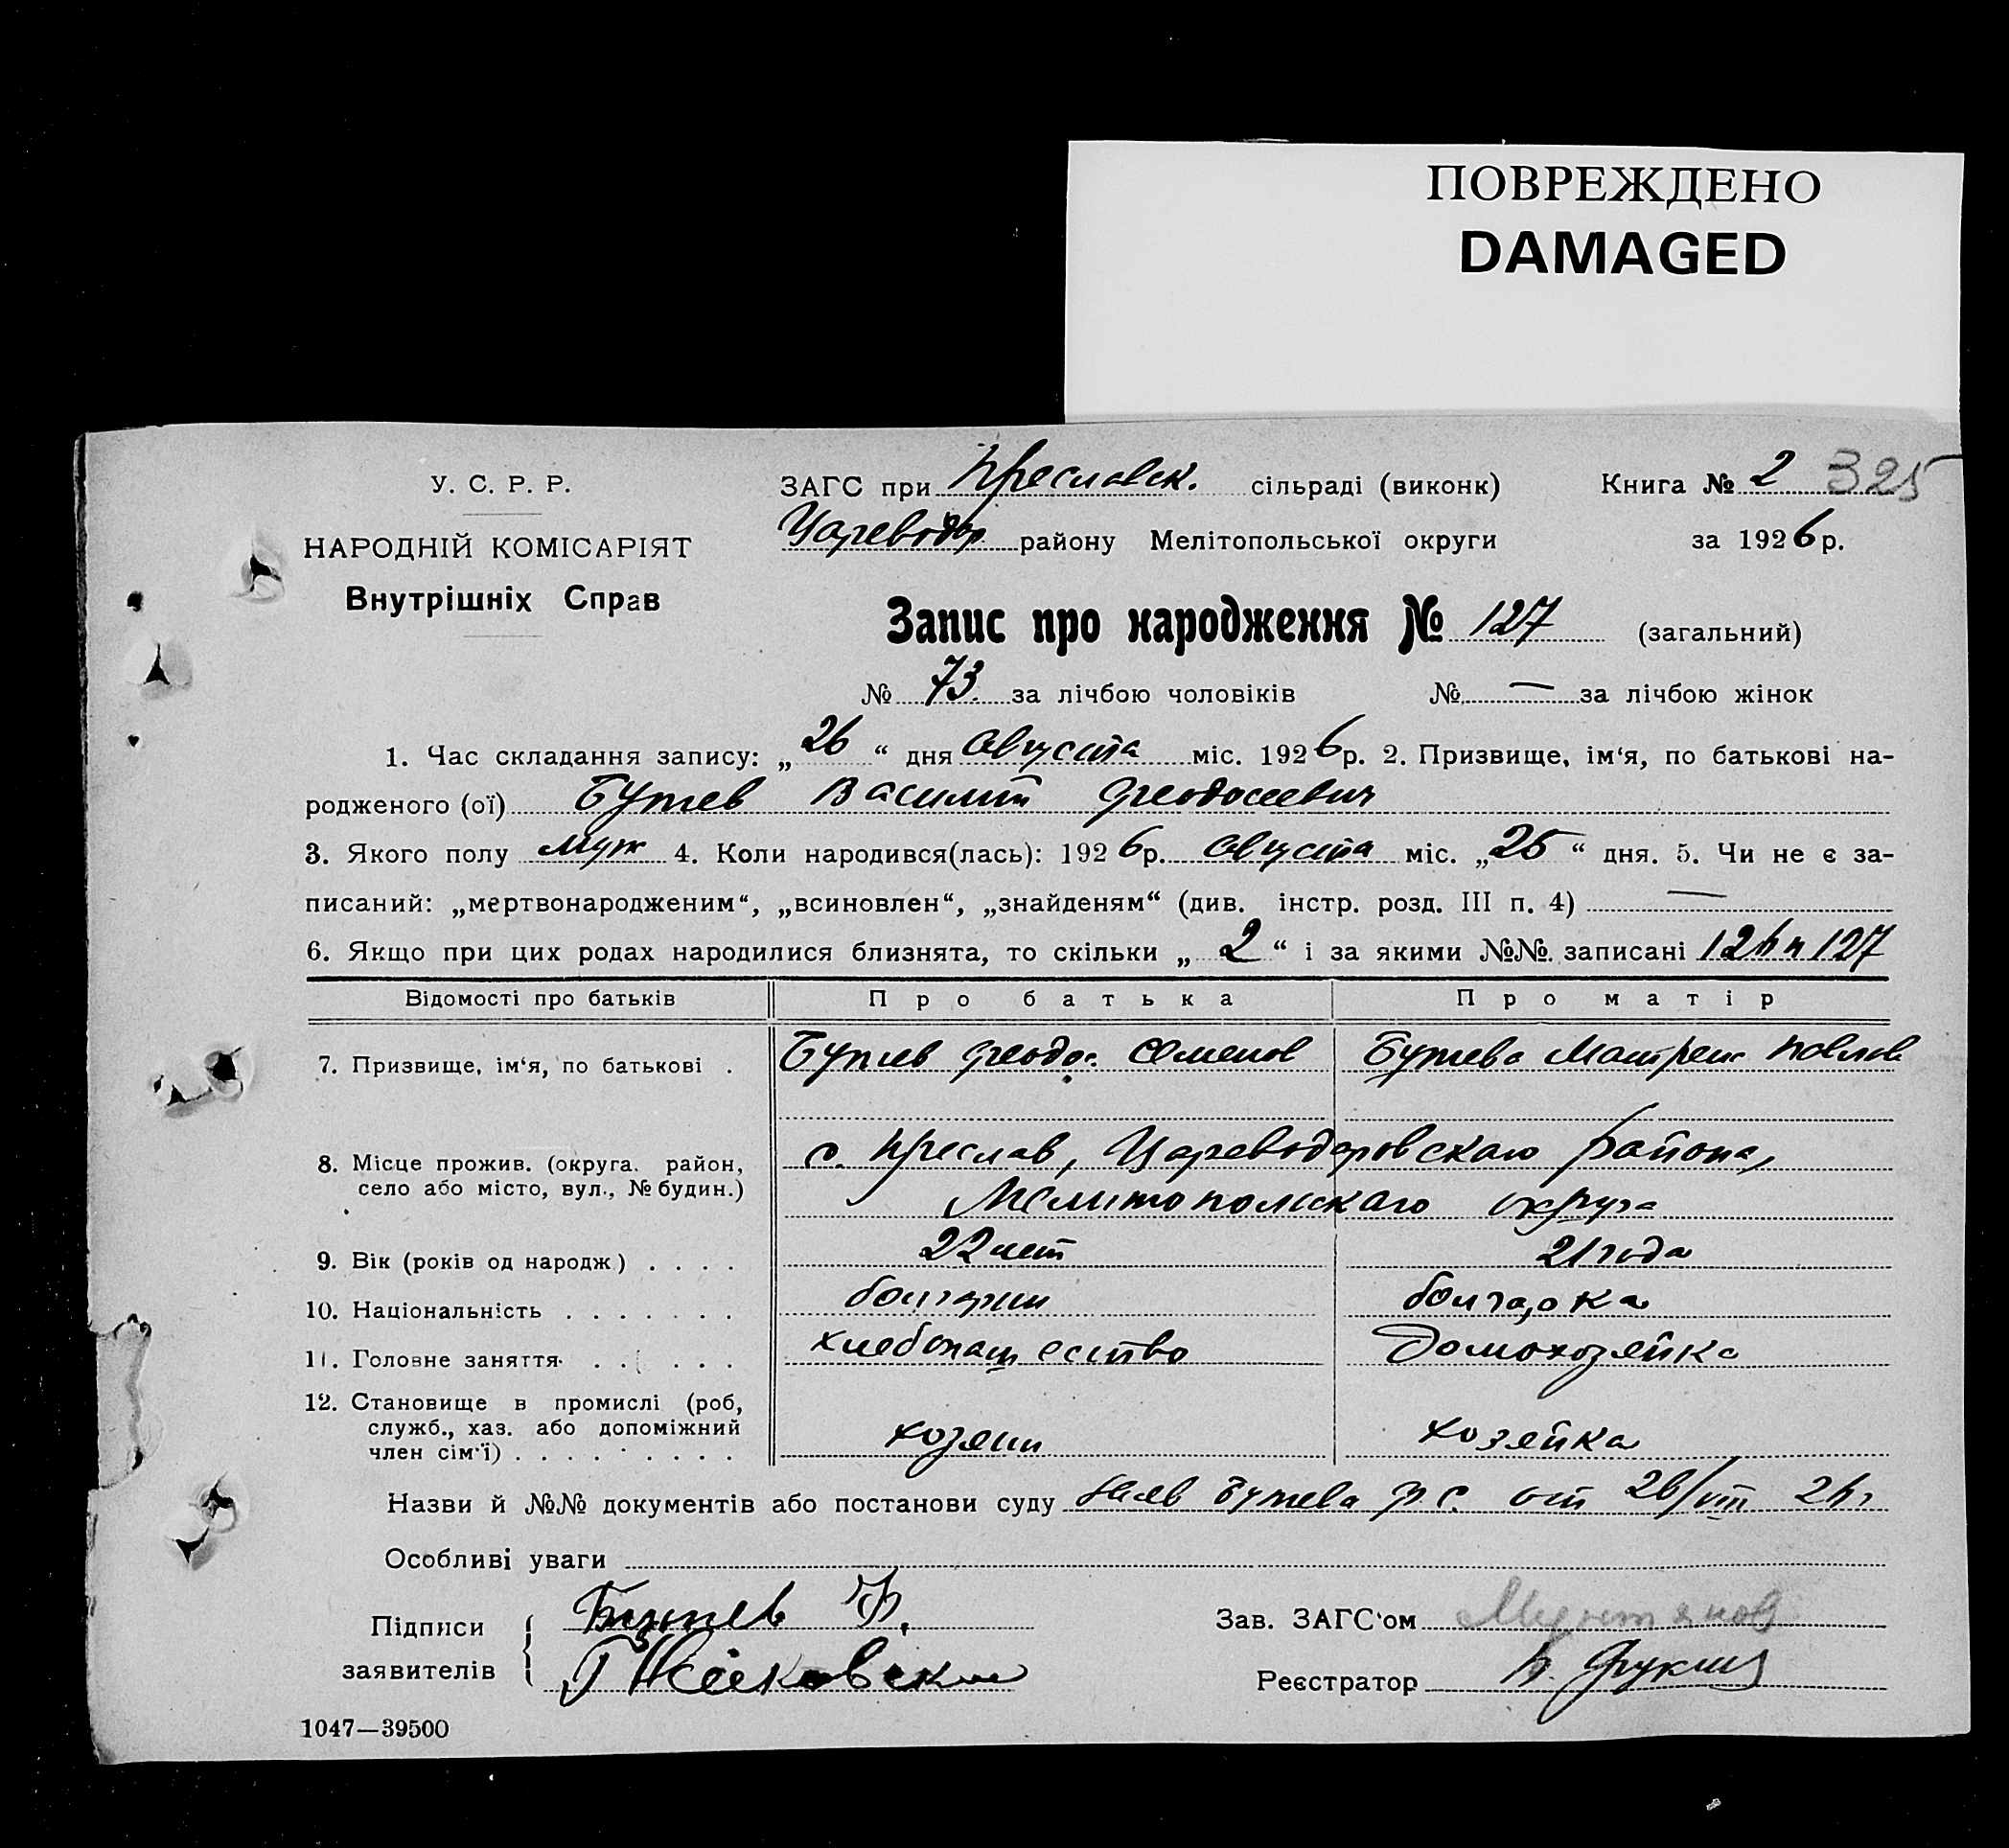 ПОВРЕЖДЕНО
DAMAGED
У. С. Р. Р.
НАРОДНІЙ КОМІСАРІЯТ
Внутрішніх Справ
ЗАГС при Преславск. сільраді (виконк)
Книга № 2 325
Цареводар району Мелітопольської округи
за 1926 р.
Запис про народження № 127 (загальний)
№ 73 за лічбою чоловіків № — за лічбою жінок
1. Час складання запису: „26“ дня Августа міс. 1926 р. 2. Призвище, ім‘я, по батькові на-
родженого (ої) Бутев Василий Феодосеевич
3. Якого полу муж 4. Коли народився(лась): 1926 р. Августа міс. „25“ дня. 5. Чи не є за-
писаний: „мертвонародженим“, „всиновлен“, „знайденям“ (див. інстр. розд. III п. 4) —
6. Якщо при цих родах народилися близнята, то скільки „2“ і за якими №№ записані 126 и 127
Відомості про батьків Про батька Про матір
7. Призвище, ім‘я, по батькові . Бутев Феодос. Семенов Бутева Матрена Павлов
8. Місце прожив. (округа. район,
село або місто, вул., № будин.)
с. Преслав, Цареводаровскаго района,
Мелитопольскаго округа
9. Вік (років од народж) . . . . 22 лет 21 года
10. Національність . . . . . . . болгарин болгарка
11. Головне заняття . . . . . . хлебопашество Домохозяйка
12. Становище в промислі (роб,
служб., хаз. або допоміжний
член сім‘ї) . . . . . . . . . хозяин хозяйка
Назви й №№ документів або постанови суду заяв Бутева Ф. С. от 26/VIII 26 г
Особливі уваги
Підписи
заявителів
Бутев Ф.
Зав. ЗАГС‘ом
Реєстратор
1047—39500